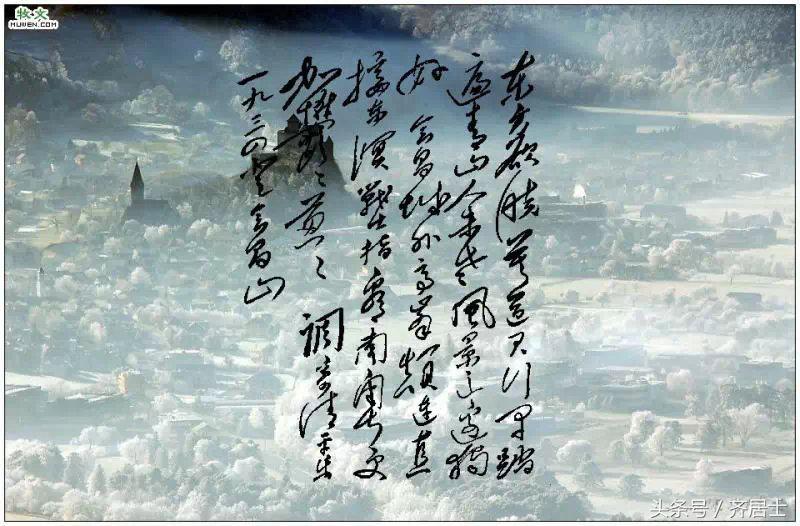 牧文
MUWEN.COM
东方欲晓莫道君行早踏
遍青山人未老风景这边独
好会昌城外高峰颠连直
接东溟戰士指看南粤更
加鬱々葱々 调寄清平乐
一九三四登会昌山
头条号 / 齐居士